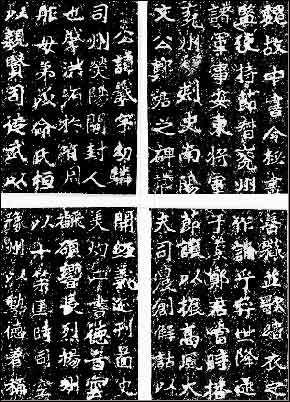 魏故中書令秘書
監使持節督兗州
諸軍事安東將軍
兗州刺史南陽
文公鄭君之碑草
公諱羲字幼驎
司州滎陽開封人
也肇洪源於有周
胙母弟以命氏桓
以親賢司徒武以
善職並歌緇衣之
作誦乎奕世降逮
于漢鄭君當時播
節讓以振高風大
夫司農創解詁以
開經義迹刊圖史
美灼二書德音雲
翻碩響長烈揚州
以十策匡時司空
豫州以勳德著稱